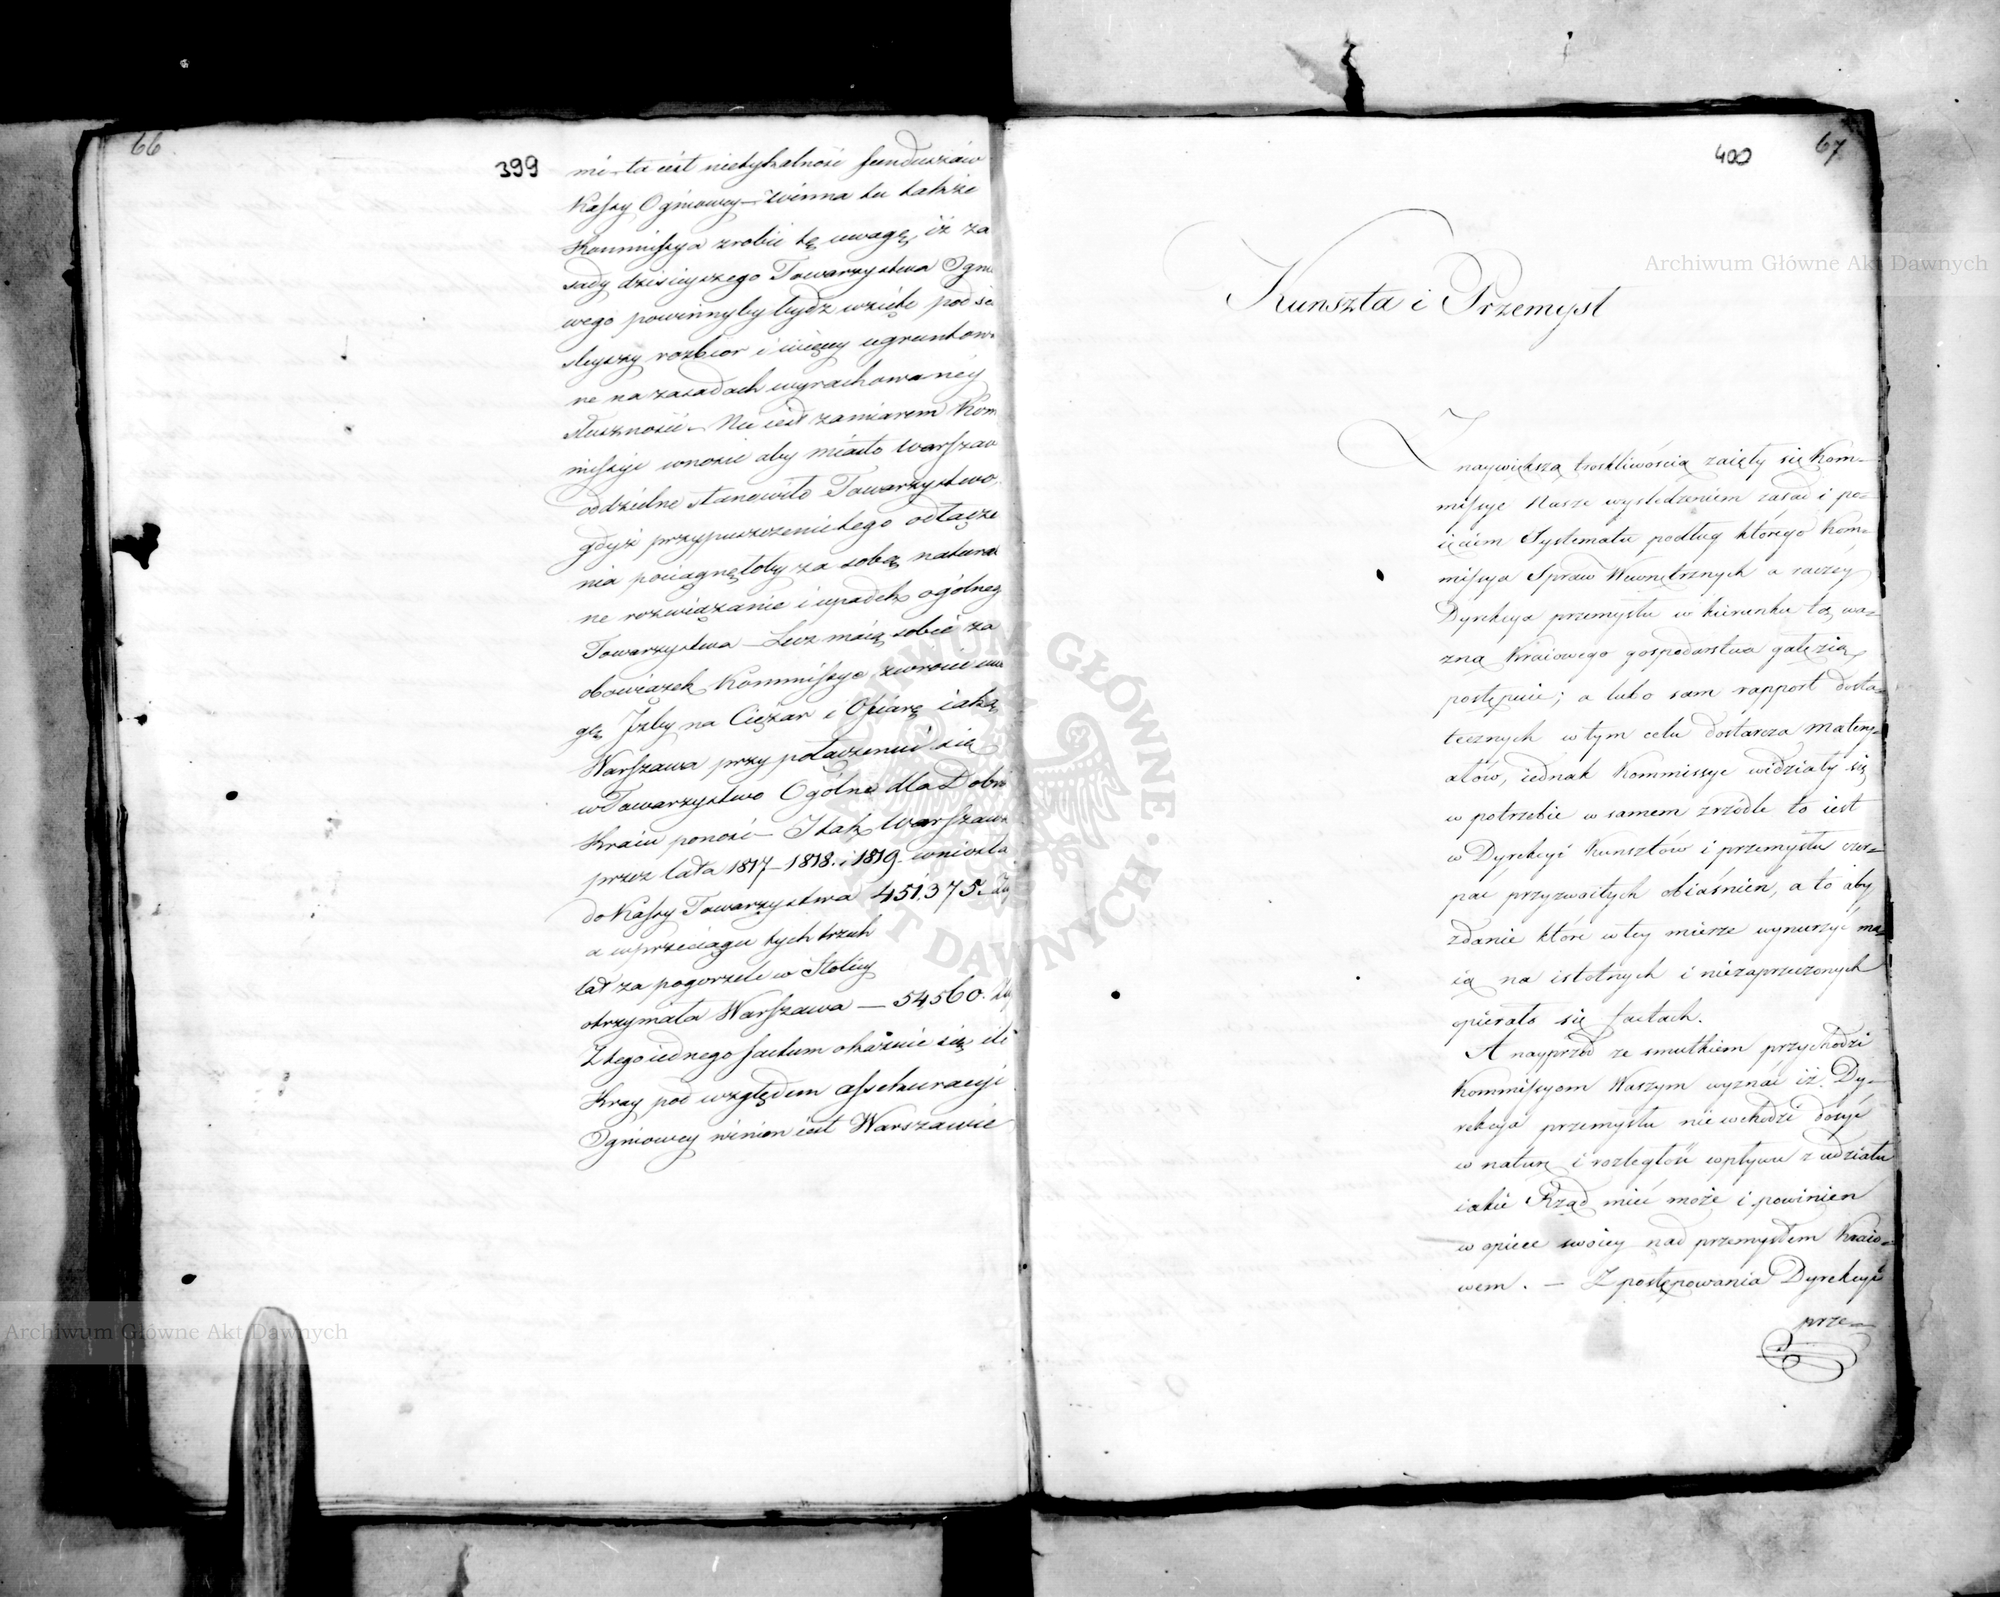 66
399
mi ta iest nietykalność funduszów
Kassy Ogniowey – Winna tu także
Kommissya zrobić tę uwagę, iż za
sady dzisieyszego Towarzystwa Ogni
wego powinnyby bydź wzięte pod ści
śleyszy rozbior i więcey ugruntowa
ne na zasadach wyrachowaney
słuszności – Nie iest zamiarem Kom
missyi wnosić aby miasto Warszaw
oddzielne stanowiło Towarzystwo,
gdyż przypuszczenie tego odłącze
nia pociągnęłoby za sobą natural
ne rozwiązanie i upadek ogólneg
Towarzystwa – Lecz maią sobie za
obowiązek Kommissye zwrócić uwa
gę Izby na Ciężar i Ofiarę iaką
Warszawa przy połączeniu się
w Towarzystwo Ogólne dla Dobra
Kraiu ponosi – I tak Warszawa
przez lata 1817 – 1818. i 1819. wniosła
do Kassy Towarzystwa 451,375. Zł
a w przeciągu tych trzech
lat za pogorzele w Stolicy
otrzymała Warszawa — 54,560. Zł
Z tego iednego factum okazuie się ile
Kray pod względem assekuracyi
Ogniowey winien iest Warszawie
400
67
Kunszta i Przemysł
Z naywiększą troskliwością zaięły się Kom–
missye Nasze wyśledzeniem zasad i po–
ięciem Systematu podług którego Kom–
missya Spraw Wewnętrznych a raczéy
Dyrekcya przemysłu w kierunku tą wa–
żną Kraiowego gospodarstwa gałęzią
postępuie; a lubo sam rapport dosta–
tecznych w tym celu dostarcza matery–
ałów, iednak Kommissye widziały się
w potrzebie w samem zrzódle to iest
w Dyrekcyi Kunsztów i przemysłu czer–
pać przyzwoitych obiaśnień, a to aby
zdanie które w tey mierze wynurzyć ma–
ią na istotnych i niezaprzeczonych
opierało się factach.
A nayprzód ze smutkiem przychodzi
Kommissyom Waszym wyznać iż Dy–
rekcya przemysłu nie wchodzi dosyć
w naturę i rozległość wpływu z udziału
iakie Rząd mieć może i powinien
w opiece swoiey nad przemysłem Kraio–
wem. – Z postępowania Dyrekcyi
prze–
Archiwum Główne Akt Dawnych
Archiwum Główne Akt Dawnych
ARCHIWUM GŁÓWNE AKT DAWNYCH